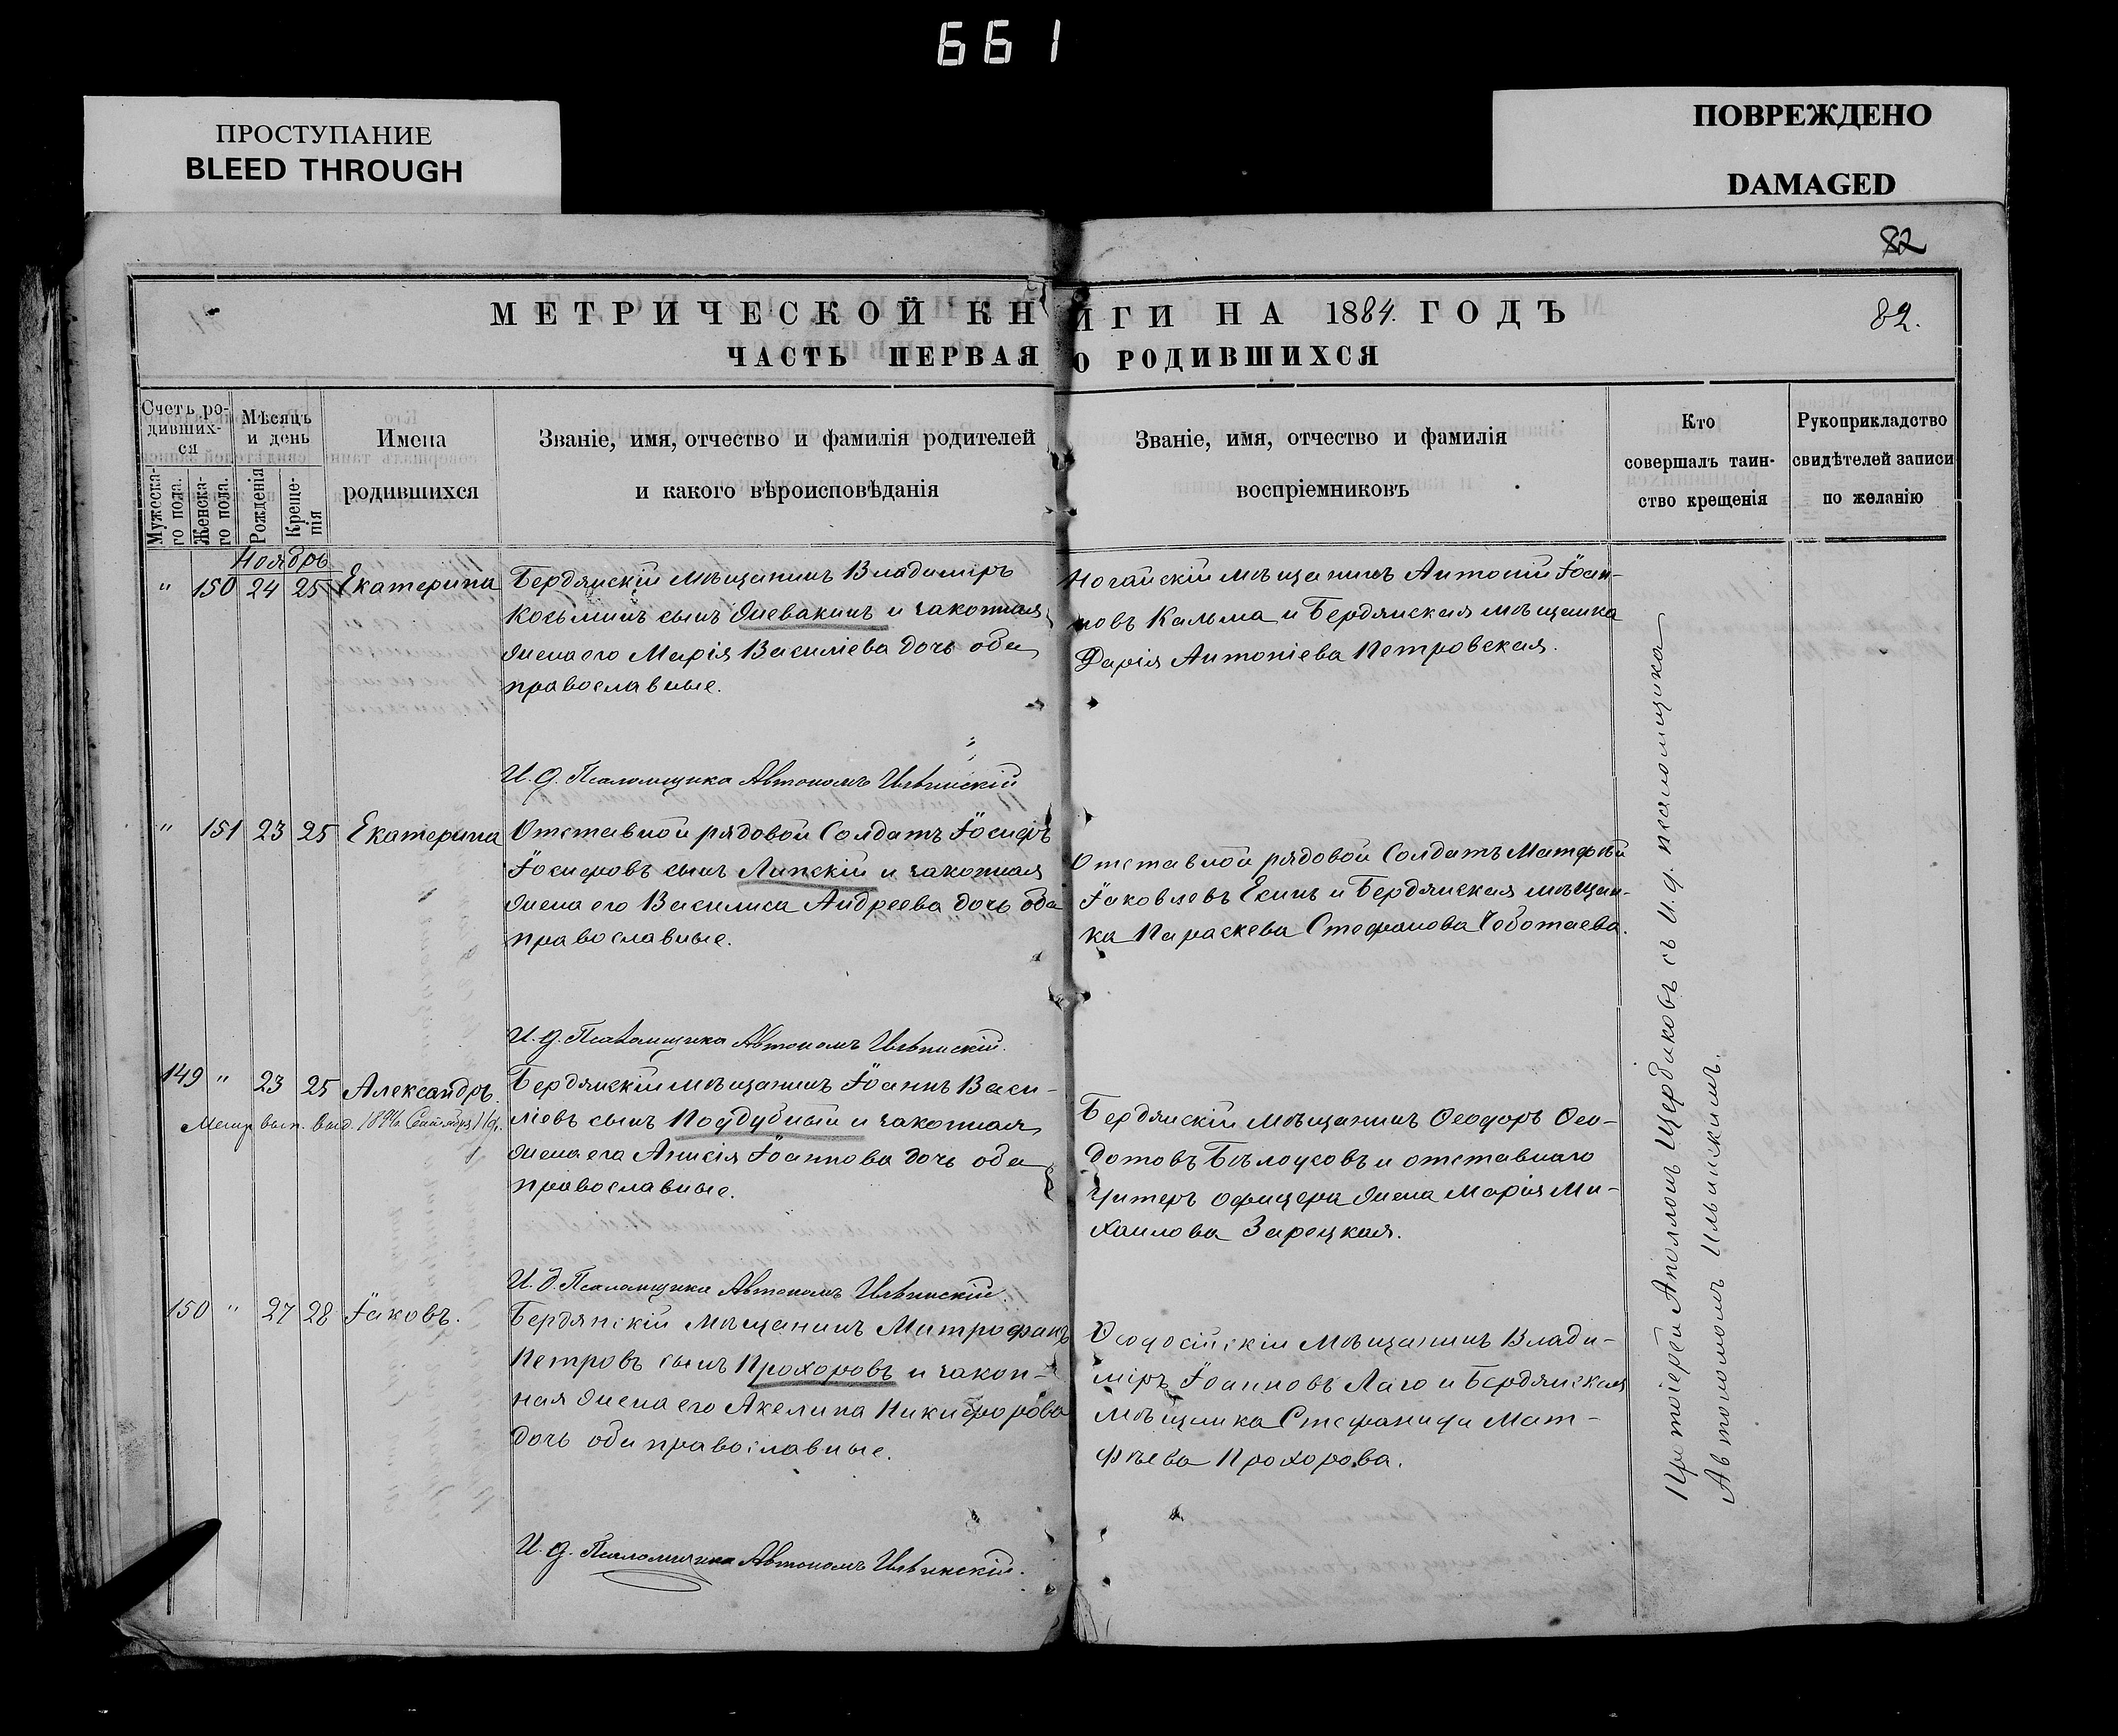 661
ПРОСТУПАНИЕ
BLEED THROUGH
ПОВРЕЖДЕНО
DAMAGED
82
МЕТРИЧЕСКОЙ КНИГИ НА 1884. ГОДЪ
82.
ЧАСТЬ ПЕРВАЯ О РОДИВШИХСЯ
Счетъ ро-
дивших-
ся
Мужеска-
го пола.
Женска-
го пола.
Мѣсяцъ
и день
Рожденія
Креще-
нія
Имена
родившихся
Званіе, имя, отчество и фамилія родителей
и какого вѣроисповѣданія
Званіе, имя, отчество и фамилія
воспріемниковъ
Кто
совершалъ таин-
ство крещенія
Рукоприкладство
свидѣтелей записи
по желанію
Ноябрь
" 150 24 25 Екатерина
Бердянскій мѣщанинъ Владиміръ
Козьминъ сынъ и законная
жена его Марія Василіева дочь оба
православные.
Ногайскій мѣщанинъ Антоній Іоан-
новъ Кальма и Бердянская мѣщанка
Дарія Антоніева Петровская.
И. д. Псаломщика Автономъ Ильинскій
" 151 23 25 Екатерина
Отставной рядовой Солдатъ Іосифъ
Іосифовъ сынъ Липскій и законная
жена его Василиса Андреева дочь оба
православные.
Отставной рядовой Солдатъ Матфѣй
Іаковлевъ Екинъ и Бердянская мѣщан-
ка Параскева Стефанова Чоботаева.
И. д. Псаломщика Автономъ Ильинскій.
149 " 23 25 Александръ.
Метр. вып. выд.
Бердянскій мѣщанинъ Іоаннъ Васи-
ліевъ сынъ Поддубный и законная
жена его Анисія Іоаннова дочь оба
православные.
Бердянскій мѣщанинъ Ѳеодоръ Ѳео-
дотовъ Бѣлоусовъ и отставнаго
Унтеръ офицера жена Марія Ми-
хаилова Зарецкая.
И. д. Псаломщика Автономъ Ильинскій.
150 " 27 28 Іаковъ.
Бердянскій мѣщанинъ Митрофанъ
Петровъ сынъ Прохоровъ и закон-
ная жена его Акелина Никифорова
дочь оба православные.
Ѳеодосійскій мѣщанинъ Влади-
міръ Іоанновъ Лаго и Бердянская
мѣщанка Стефанида Мат-
фѣева Прохорова.
И. д. Псаломщика Автономъ Ильинскій.
Протоіерей Аполлонъ Щербаковъ съ И. д. псаломщика
Автономомъ Ильинскимъ.